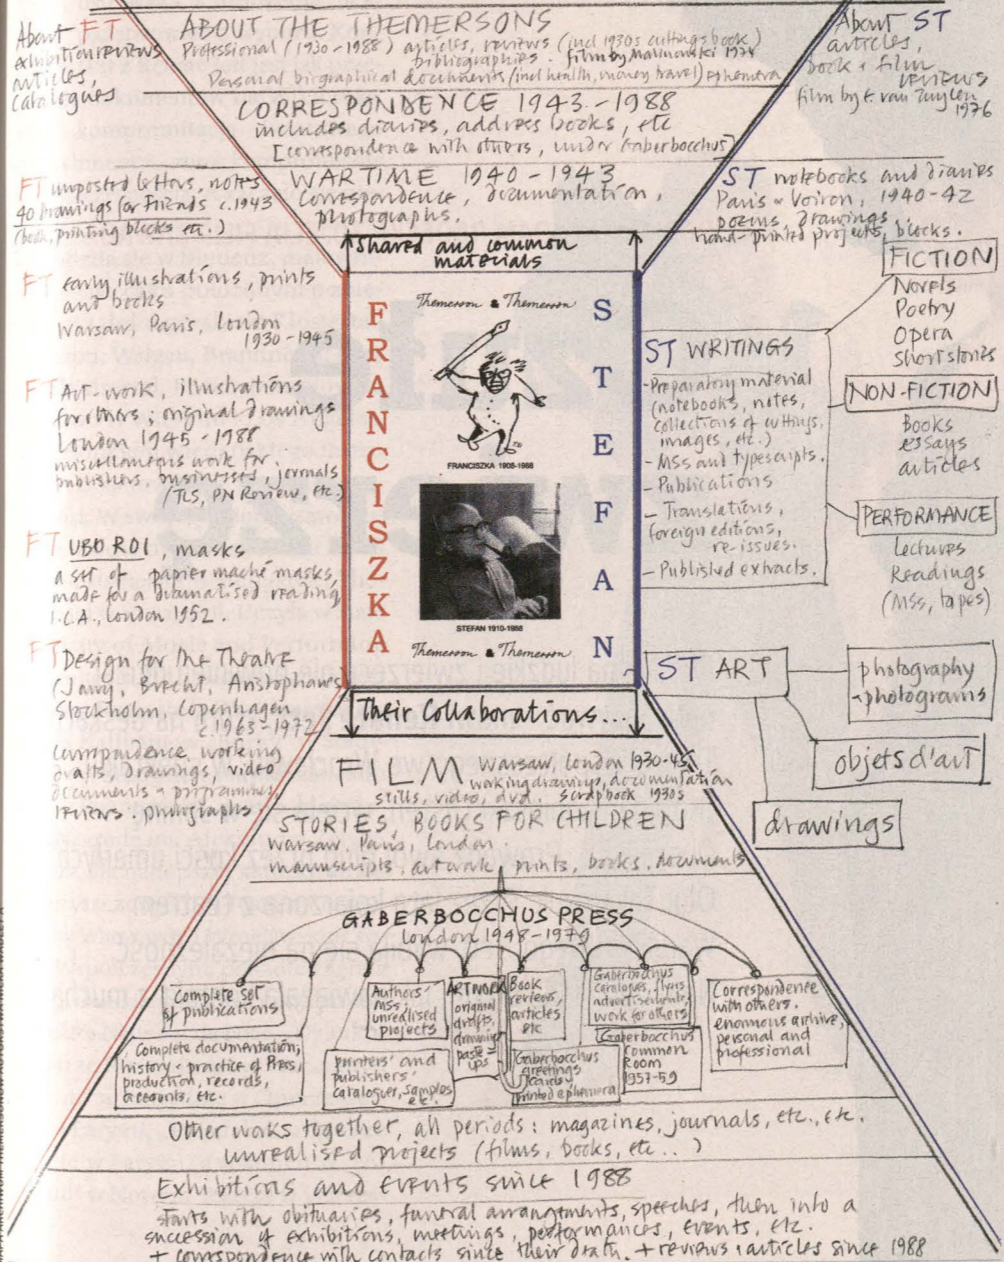 About FT
exhibition reviews
articles,
catalogues
ABOUT THE THEMERSONS
Professional (1930-1988) articles, reviews (incl 1930s cuttings book)
bibliographies. film by Malinowski
Personal biographical documents (incl health, money travel) ephemera
About ST
articles,
book + film
reviews
film by E. van Zuylen
1976
CORRESPONDENCE 1943-1988
includes diaries, address books, etc
[correspondence with others, under Gaberbocchus]
WARTIME 1940-1943
Correspondence, documentation,
photographs.
FT unposted letters, notes
40 Drawings for Friends c.1943
(book, printing blocks etc.)
ST notebooks and diaries
Paris & Voiron, 1940-42
poems, drawings
hand-printed projects, blocks.
Shared and common
materials
FT early illustrations, prints
and books
Warsaw, Paris, London
1930-1945
FT Art-work, illustrations
for others; original drawings
London 1945-1988
miscellaneous work for
publishers, businesses, journals
(TLS, PN Review, etc.)
FT UBU ROI, masks
a set of papier maché masks,
made for a dramatised reading
I.C.A., London 1952.
FT Design for the Theatre
(Jarry, Brecht, Aristophanes
Stockholm, Copenhagen
c.1963-1972
correspondence, working
drafts, drawings, video
documents & programmes
reviews. photographs
FRANCISZKA
Themerson & Themerson
FRANCISZKA 1908-1988
STEFAN 1910-1988
Themerson & Themerson
STEFAN
ST WRITINGS
-Preparatory material
(notebooks, notes,
collections of cuttings,
images, etc.)
-MSS and typescripts.
-Publications
-Translations,
foreign editions,
re-issues.
-Published extracts.
FICTION
Novels
Poetry
Opera
Short stories
NON-FICTION
Books
essays
articles
PERFORMANCE
Lectures
Readings
(MSS, tapes)
ST ART
photography
photograms
objets d'art
drawings
Their Collaborations...
FILM Warsaw, London 1930-45,
working drawings, documentation
stills, video, dvd. Scrapbook 1930s
STORIES, BOOKS FOR CHILDREN
Warsaw, Paris, London.
manuscripts, artwork, prints, books, documents
GABERBOCCHUS PRESS
London 1948-1979
Complete set
of publications
Complete documentation,
history & practice of Press,
production, records,
accounts, etc.
Authors'
MSS,
unrealised
projects
Printers' and
publishers'
catalogues, samples
etc.
ARTWORK
original
drafts,
drawings
paste-
ups
Book
reviews,
articles
etc
Gaberbocchus
greetings
cards
printed ephemera
Gaberbocchus
catalogues, flyers
advertisements,
work for others
Gaberbocchus
Common
Room
1957-59
Correspondence
with others.
enormous archive,
personal and
professional
Other works together, all periods: magazines, journals, etc., etc.
unrealised projects (films, books, etc..)
Exhibitions and events since 1988
starts with obituaries, funeral arrangements, speeches, then into a
succession of exhibitions, meetings, performances, events, etc.
+ correspondence with contacts since their death. + reviews & articles since 1988